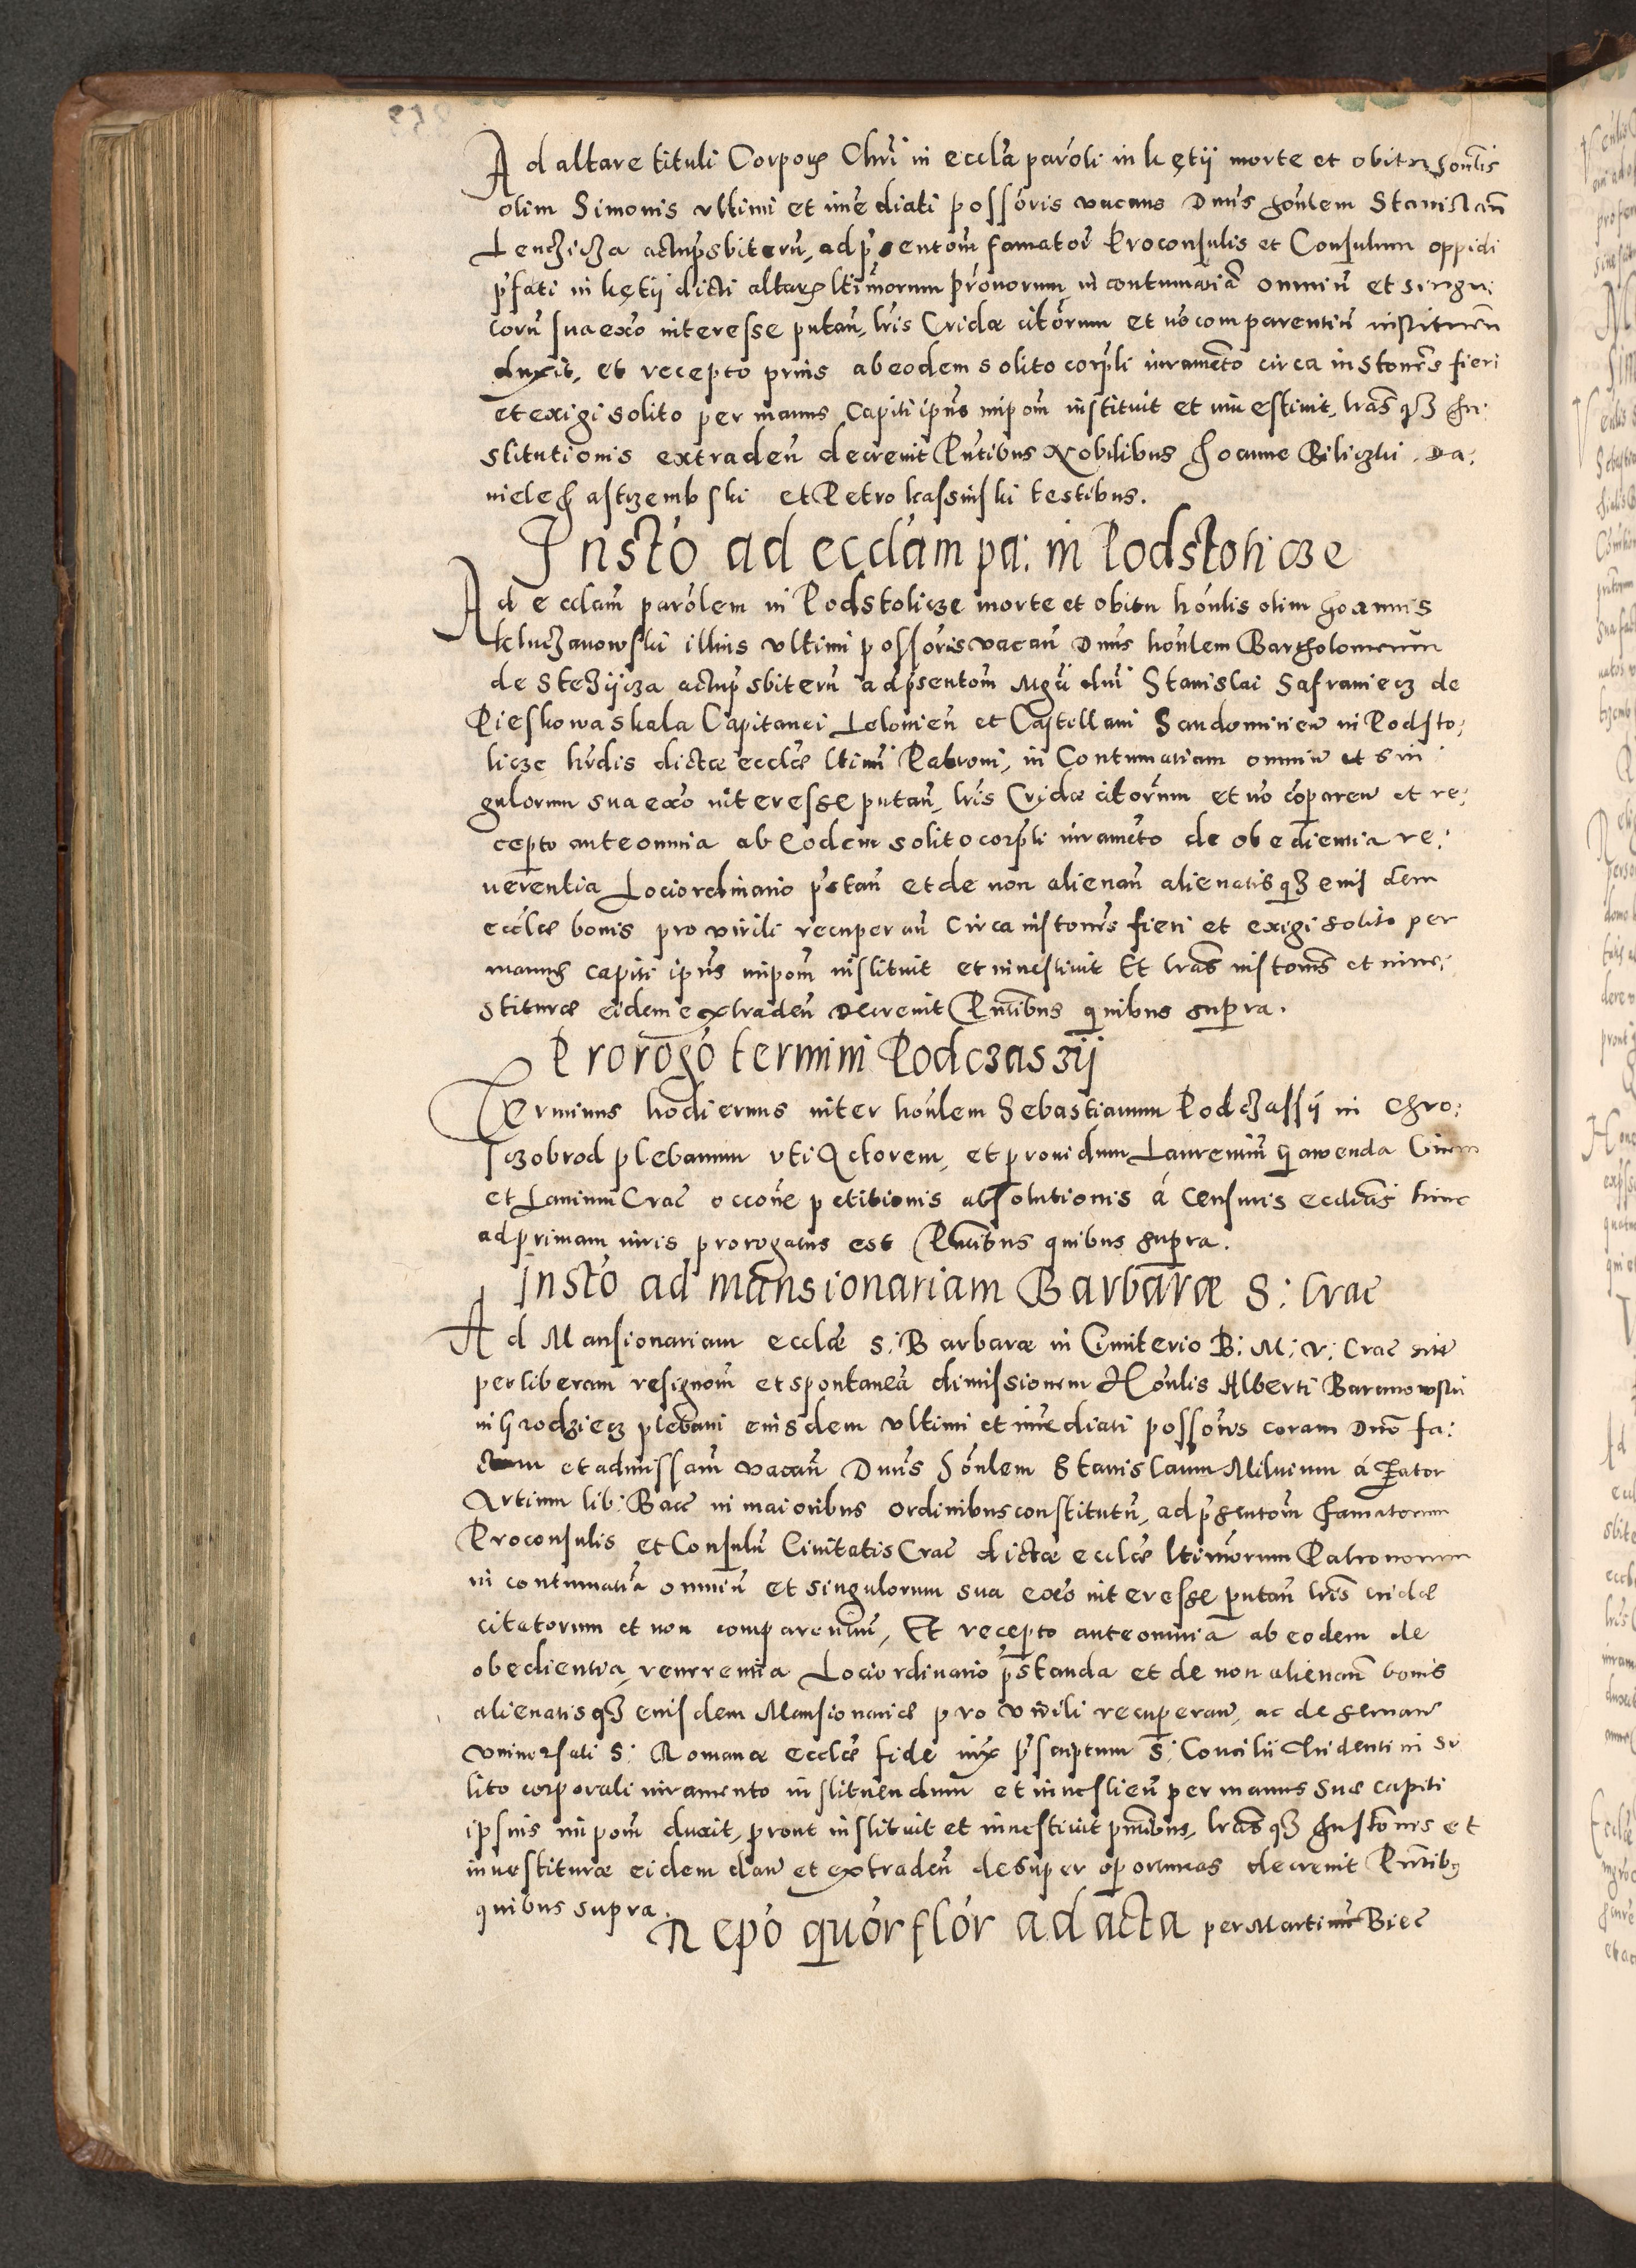 Ad altare tituli Corporis Chri in eccla paroli in Kętij morte et obitu honlis
olim Simonis ultimi et imediati possoris vacans Dnus honlem Stanislaū
Lenczicza actuprsbiterū, ad prsentom famator Proconsulis et Consulum oppidi
prfati in Kętij dicti altaris ltimorum pronorum in contumaciā omniū et singu:
lorū sua exo interesse putan, lris Cridæ citorum et no comparentiū instituen
duxit, et recepto prius ab eodem solito corprli iuramēto circa instones fieri
et exigi solito per manus capiti ipius impom instituit et investivit, lras qz In:
stitutionis extraden decrevit Pntibus Nobilibus Joanne Biliczki. Da:
niele Jastrzembski et Petro Kassinski testibus.
Insto ad ecclam pa: in Podstolicze
Ad ecclam parolem in Podstolicze morte et obitu honlis olim Joannis
Kluczanowski illius ultimi possoris vacan Dnus honlem Bartholomeum
de Stezijcza actuprsbiterū ad prsentom Mgci dni Stanislai Safraniecz de
Pieskowaskala Capitanei Lelovien et Castellani Sandomirien in Podsto:
licze hrdis dictæ ecclæ ltimi Patroni, in Contumatiam omniū et sin
gulorum sua exo interesse putan, lris Cridæ citorum et no coparen et re:
cepto ante omnia ab eodem solito corprli iuramēto de obedientia re:
verentia Loci ordinario prstan et de non alienan alienatis qz eiusdem
ecclæ bonis pro virili recuperan circa instones fieri et exigi solito per
manus capiti ipius impom instituit et investivit Et lras instonis et inve:
stituræ eidem extraden Decrevit Pntibus quibus supra.
Prorogo termini Podczaszij
Terminus hodiernus inter honlem Sebastianum Podczassij in Chro:
sczobrod plebanum uti Actorem, et providum Laurentiū Gawenda Civem
et Lanium Crac occone petitionis absolutionis á Censuris ecclias hinc
ad primam iuris prorogatus est Pntibus quibus supra.
Insto ad mansionariam Barbaræ S: Crac
Ad Mansionariam ecclæ S: Barbaræ in Cimiterio B: M: V: Crac sitæ
per liberam resignom et spontaneā dimissionem Honlis Alberti Baranowski
in Grodziecz plebani eiusdem ultimi et imediati possoris coram Dno fa:
ctam et admissam vacan Dnus Honlem Stanislaum Milvium á Zator
Artium lib: Bacc in maioribus ordinibus constitutū, ad prsentom Famatorum
Proconsulis et Consulū Civitatis Crac dictæ ecclæ ltimorum Patronorum
in contumatiā omniū et singulorum sua exo interesse putan lris cridæ
citatorum et non comparentiū, Et recepto ante omnia ab eodem de
obedientia, reverentia Loci ordinario prstanda et de non alienan bonis
alienatis qz eiusdem Mansionariæ pro virili recuperan, ac de servan
universali S: Romanæ ecclæ fide iux prscriptum S: Concilii Tridentini so
lito corporali iuramento instituendum et investien per manus suæ capiti
ipsius impom duxit, prout instituit et investivit pntibus, lras qz Instonis et
investituræ eidem dan et extraden desuper oportunas decrevit Pntibus
quibus supra.
Repo quor flor ad acta per Martinū Biec